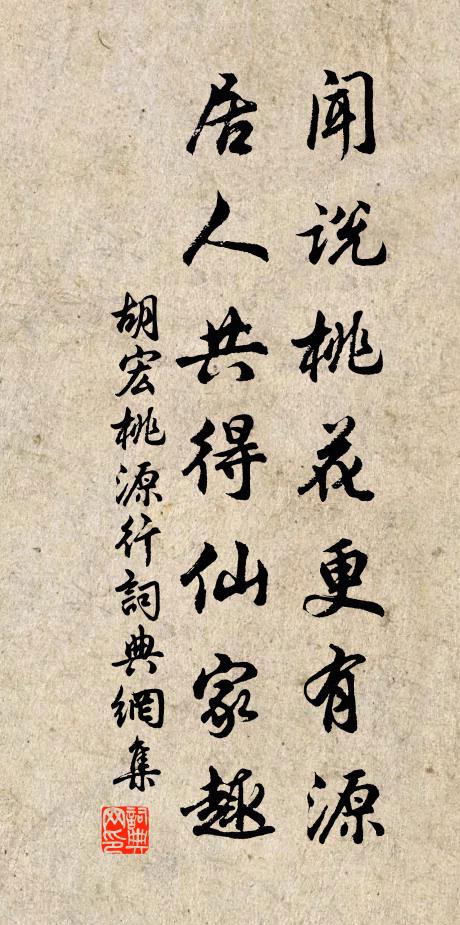 聞説桃花更有源
居人共得仙家趣
胡宏桃源行詞典網集
詞典
网印